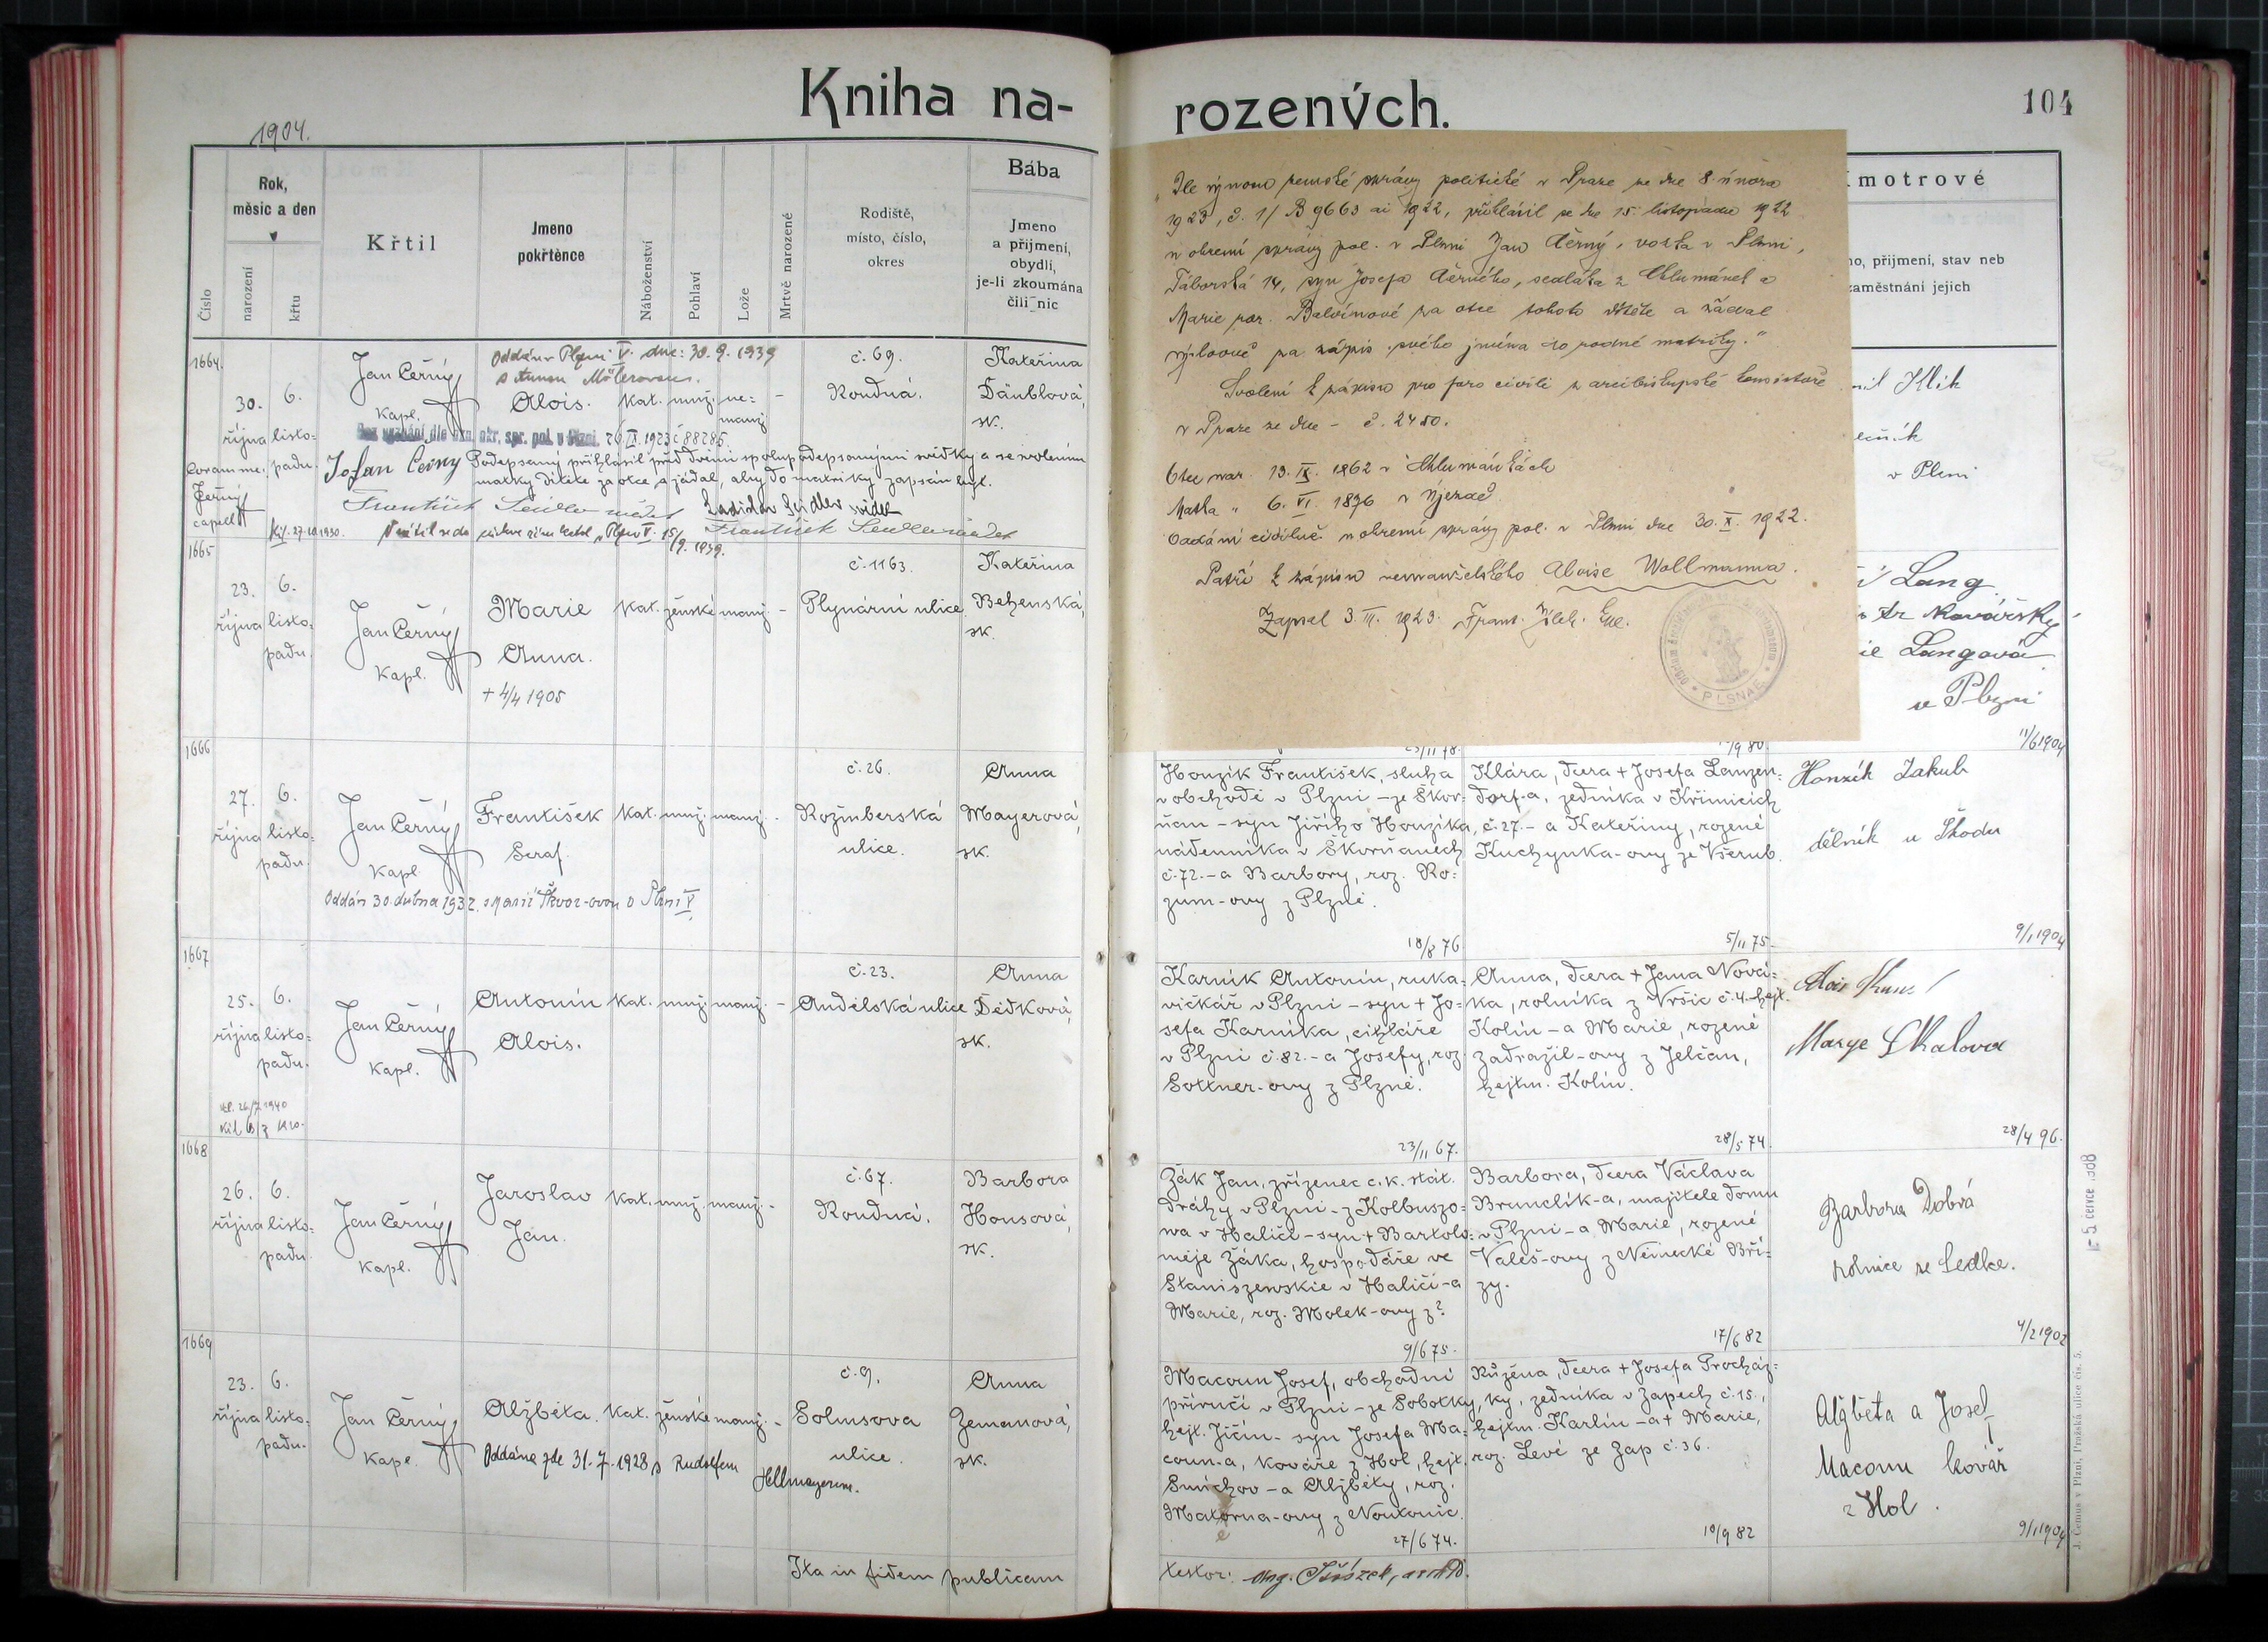 Kniha na-
1904.
Číslo
Rok,
měsíc a den
narození
křtu
Křtil
Jmeno
pokřtěnce
Náboženství
Pohlaví
Lože
Mrtvě narozené
Rodiště,
místo, číslo,
okres
Bába
Jmeno
a přijmení,
obydlí,
je-li zkoumána
čili nic
1664.
30.
října
6.
listo-
padu.
Jan Černý
kapl.
Oddán v Plzni V. dne: 30. 9. 1939
s Annou
Alois.
kat.
muž.
ne=
manž.
-
č. 69.
Roudná.
Kateřina
Däublová,
zk.
26. IX. 1923 č 88285.
Coram me.
Černý
capell.
Johan Černy
Podepsaný přihlásil před dvěmi spolupodepsanými svědky a se svolením
matky dítěte za otce a žádal, aby do matriky zapsán byl.
František Seidler svědek
Ladislav Seidler svědek
27.10.1930.
Plzeň V. 15/9. 1939.
1665
23.
října
6.
listo-
padu.
Jan Černý
kapl.
Marie
Anna.
+ 4/4 1905
kat.
ženské
manž.
-
č. 1163.
Plynární ulice
Kateřina
Behenská,
zk.
1666
27.
října
6.
listo-
padu.
Jan Černý
kapl
František
Seraf.
kat.
muž.
manž.
-
č. 26.
Rožmberská
ulice.
Anna
Mayerová,
zk.
Oddán 30 dubna 1932. s Marií Škvor-ovou v Plzni V.
1667
25.
října
6.
listo-
padu.
Jan Černý
kapl.
Antonín
Alois.
kat.
muž.
manž.
-
č. 23.
Andělská ulice
Anna
Dědková,
zk.
26/7 1940
1668
26.
října
6.
listo-
padu.
Jan Černý
kapl.
Jaroslav
Jan.
kat.
muž.
manž.
-
č. 67.
Roudná.
Barbora
Housová,
zk.
1669
23.
října
6.
listo-
padu.
Jan Černý
kapl.
Alžběta.
kat.
ženské
manž.
-
č. 9.
Solmsova
ulice.
Anna
Zemanová,
zk.
Oddána zde 31. 7. 1928 s Rudolfem
Hellmayerem.
Ita in fidem publicam
rozených.
104
kmotrové
přijmení, stav neb
zaměstnání jejich
"Dle výnosu zemské správy politické v Praze ze dne 8. února
1923, č. 1/ B 9663 ai 1922, přihlásil se dne 15. listopadu 1922
u okresní správy pol. v Plzni Jan Černý, v Plzni,
Táborská 14, syn Josefa Černého, sedláka z Chlumánek a
Marie roz. Balvínové za otce tohoto dítěte a žádal
výslovně za zápis svého jména do rodné matriky."
Svolení k zápisu pro foro civili z arcibiskupské konsistoře
v Praze ze dne - č. 2450.
Otec nar. 19. IX. 1862 v Chlumánkách
Matka " 6. VI. 1876 v Újezdě
Oddáni civilně u okresní správy pol. v Plzni dne 30. X. 1922.
Patří k zápisu nemanželského Aloise Wollmanna.
Zapsal 3. III. 1923. Frant.
PLSNAE
v Plzni
Lang
Kovářský
Langová
v Plzni
11/6 1904
Honzík František, sluha
v obchodě v Plzni - ze Škvr-
ňan - syn Jiřího Honzíka,
nádenníka v Škvrňanech
č. 72. - a Barbory, roz. Ro-
zum-ovy z Plzně.
18/8 76
Klára, dcera + Josefa Lanzen-
dorf-a, zedníka v Křimicích
č. 27. - a Kateřiny, rozené
Kuchynka-ovy ze Všerub.
5/11 75.
Honzík Jakub
dělník u Škodu
9/1 1904
Karník Antonín, ruka-
vičkář v Plzni - syn + Jo-
sefa Karníka, cihláře
v Plzni č. 82. - a Josefy, roz.
Sottner-ovy z Plzně.
23/11 67.
Anna, dcera + Jana Nová-
ka, rolníka z Vršic č. 4. hejt.
Kolín - a Marie, rozené
Zadražil-ovy z Jelčan,
hejtm. Kolín.
28/5 74.
Marye Skalova
28/4 96.
Žák Jan, zřízenec c. k. stát.
dráhy v Plzni - z Kolbuszo-
wa v Haliči - syn + Bartolo-
měje Žáka, hospodáře ve
Staniszewskie v Haliči - a
Marie, roz. Molek-ovy z?
9/6 75.
Barbora, dcera Václava
Brunclík-a, majitele domu
v Plzni - a Marie, rozené
Valeš-ovy z Německé Bří-
zy.
17/6 82
Barbora Dobrá
rolnice ze Sedlce.
4/2 1902
Macoun Josef, obchodní
příručí v Plzni - ze Sobotky,
hejt. Jičín - syn Josefa Ma-
coun-a, kováře z Hol, hejt.
Smíchov - a Alžběty, roz.
Matorna-ovy z Noutonic.
27/6 74.
Růžena, dcera + Josefa Procház-
ky, zedníka v Zapech č. 15.,
hejtm. Karlín - a + Marie,
roz. Levé ze Zap č. 36.
10/9 82
Alžběta a Josef
Macoun kovář
z Hol.
9/1 1904
testor:
J. Černus v Plzni, Pražská ulice čís. 5.